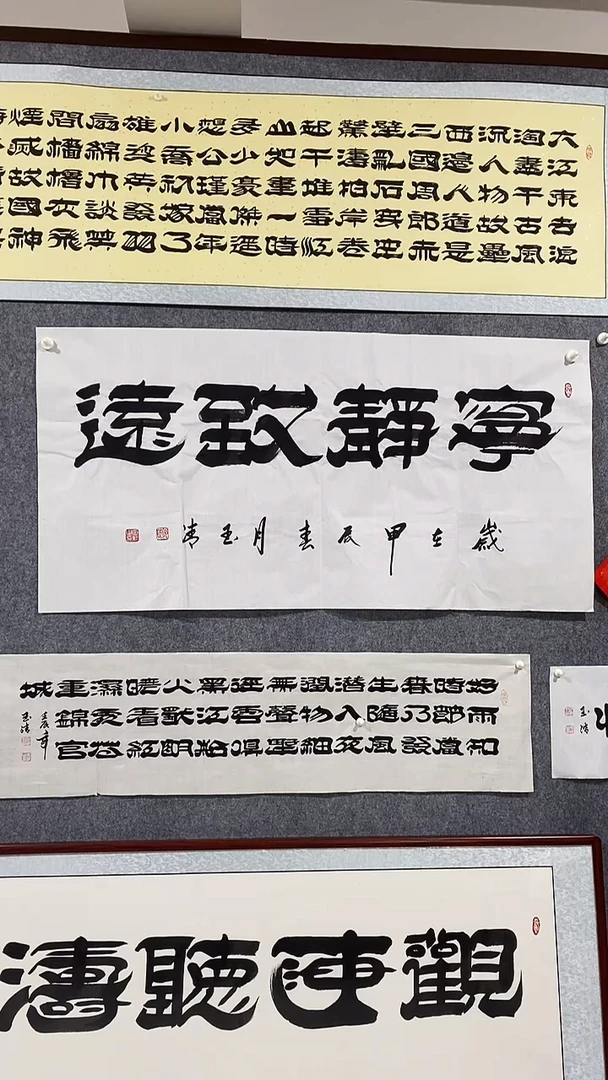 大江東去浪
淘盡千古風
流人物故壘
西邊人道是
三國周郎赤
壁亂石穿空
驚濤拍岸卷
起千堆雪江
山如畫一時
多少豪傑遙
想公瑾當年
小喬初嫁了
雄姿英發羽
扇綸巾談笑
間檣櫓灰飛
煙滅故國神
寧靜致遠
歲在甲辰春月玉清
好雨知
時節當
春乃發
生隨風
潛入夜
潤物細
無聲野
徑雲俱
黑江船
火獨明
曉看紅
濕處花
重錦官
城
玉清
玉清
觀海聽濤